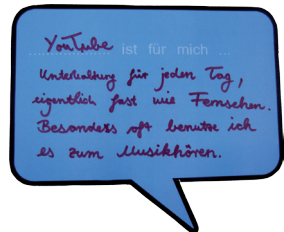 YouTube ist für mich ...
Unterhaltung für jeden Tag,
eigentlich fast wie Fernsehen.
Besonders oft benutze ich
es zum Musikhören.